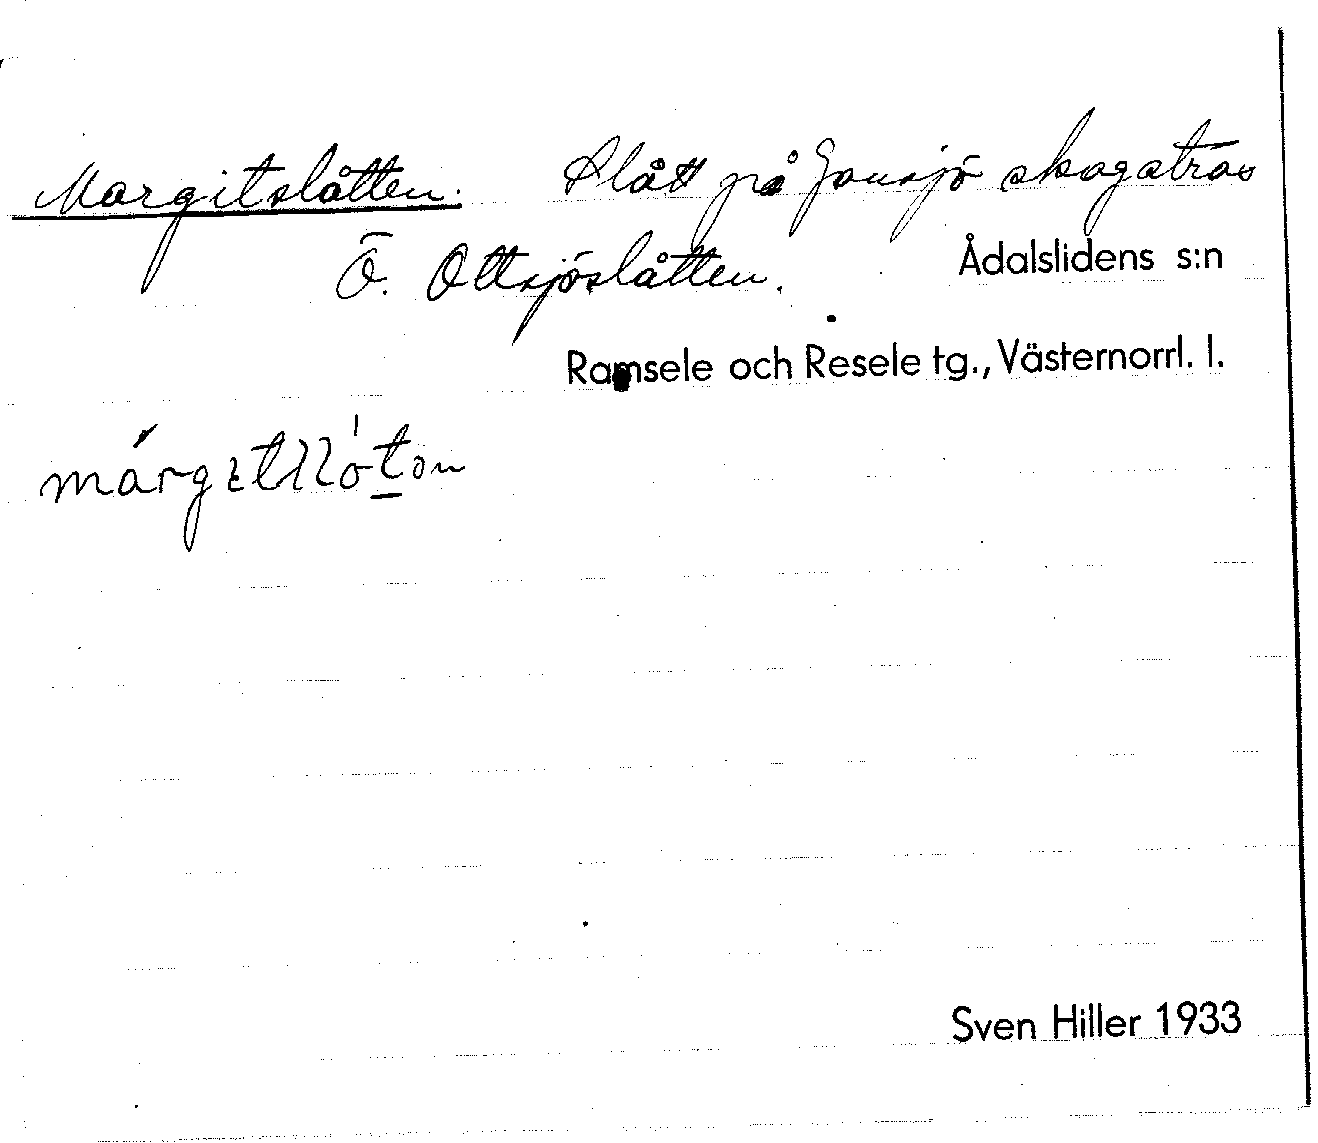 Margitslåtten. Slått på Jansjö skogstras
Ö. Ottsjöslåtten. Ådalslidens s:n
Ramsele och Resele tg., Västernorrl. l.
Sven Hiller 1933